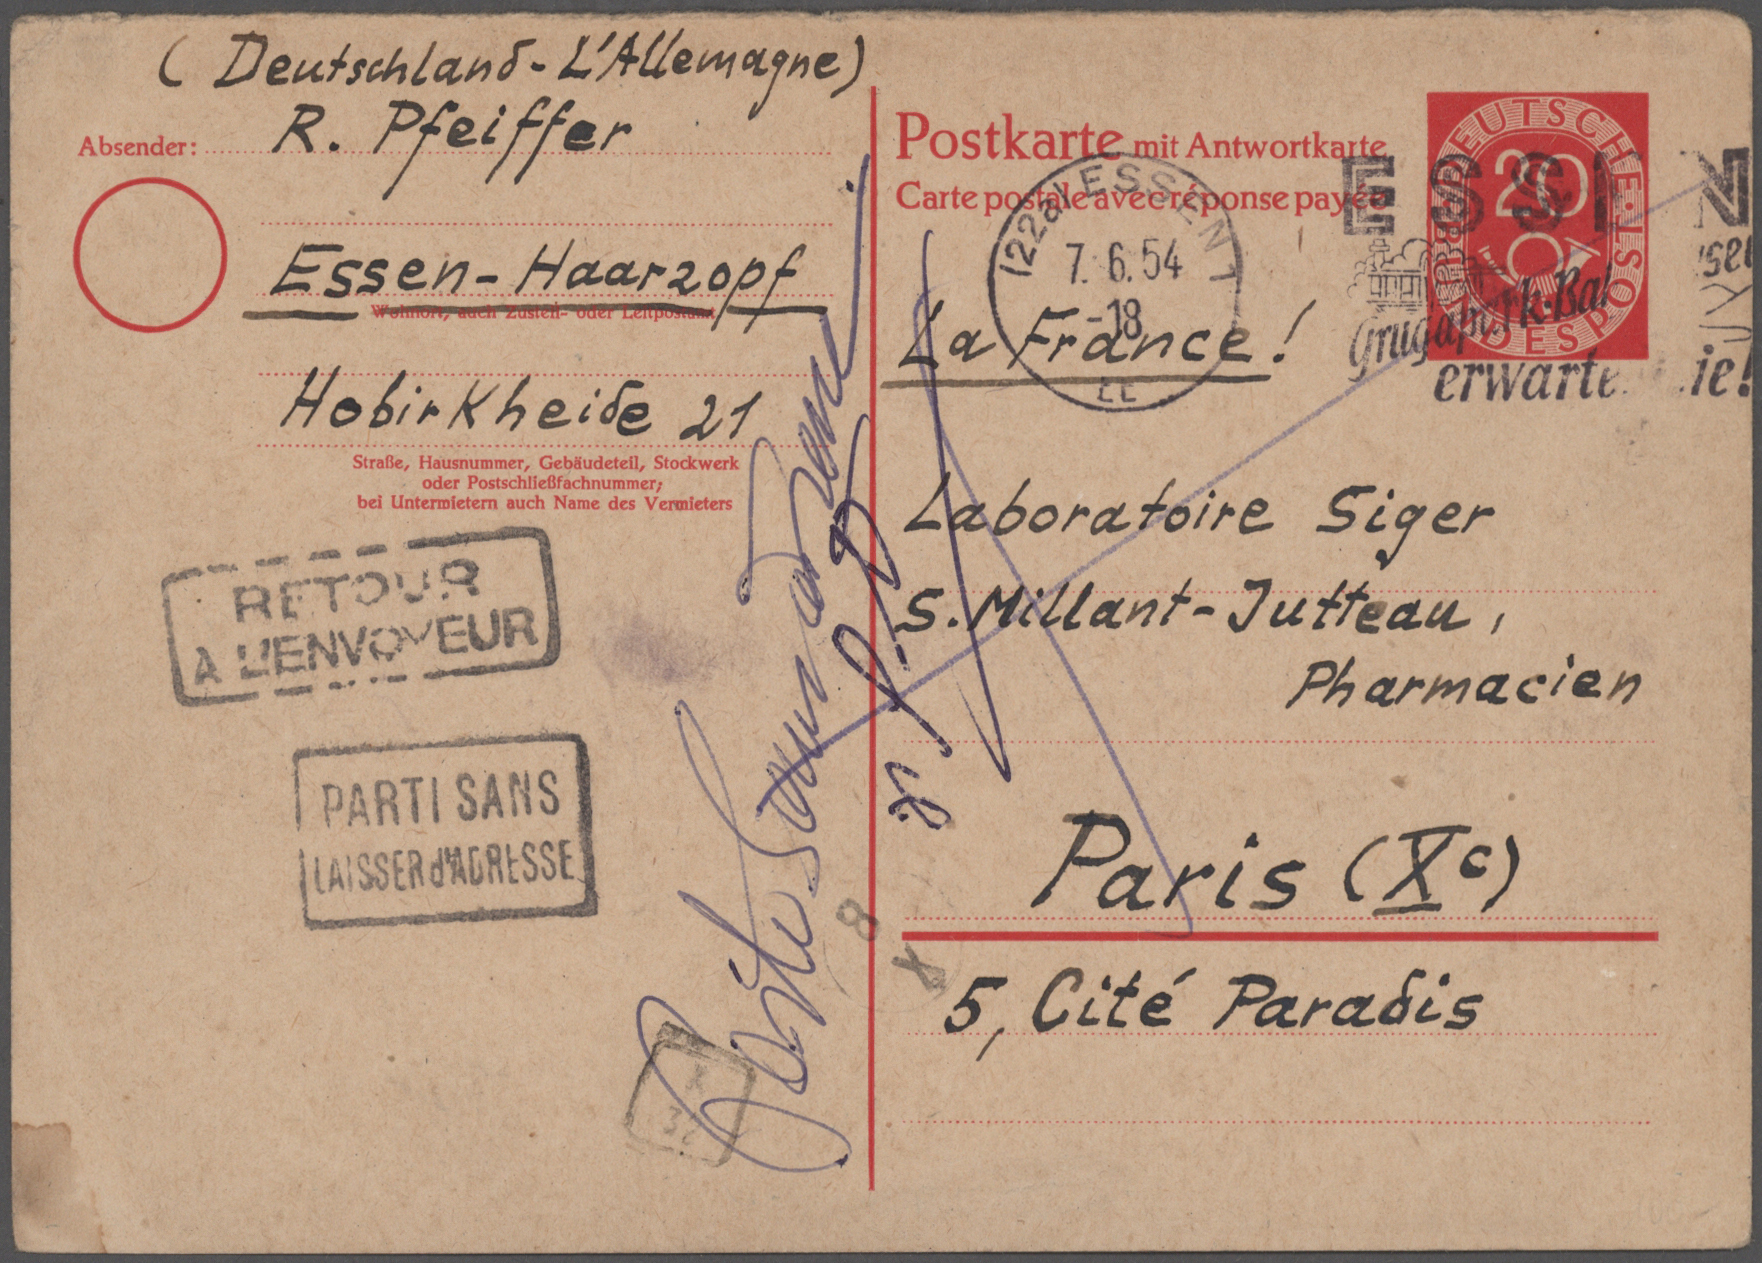 ( Deutschland - L'Allemagne)
Absender: R. Pfeiffer
Essen - Haarzopf
Wohnort, auch Zustell- oder Leitpostamt
Hobirkheide 21
Straße, Hausnummer, Gebäudeteil, Stockwerk
oder Postschließfachnummer;
bei Untermietern auch Name des Vermieters
RETOUR
A L'ENVOYEUR
PARTI SANS
LAISSER d'ADRESSE
X
32
8
X
Postkarte mit Antwortkarte
Carte postale avec réponse payée
DEUTSCHE BUNDESPOST
20
(22a) ESSEN 1
7. 6. 54
-18
ESSEN
erwartet Sie!
La France!
Laboratoire Siger
S. Millant - Jutteau,
Pharmacien
Paris (Xe)
5, Cité Paradis